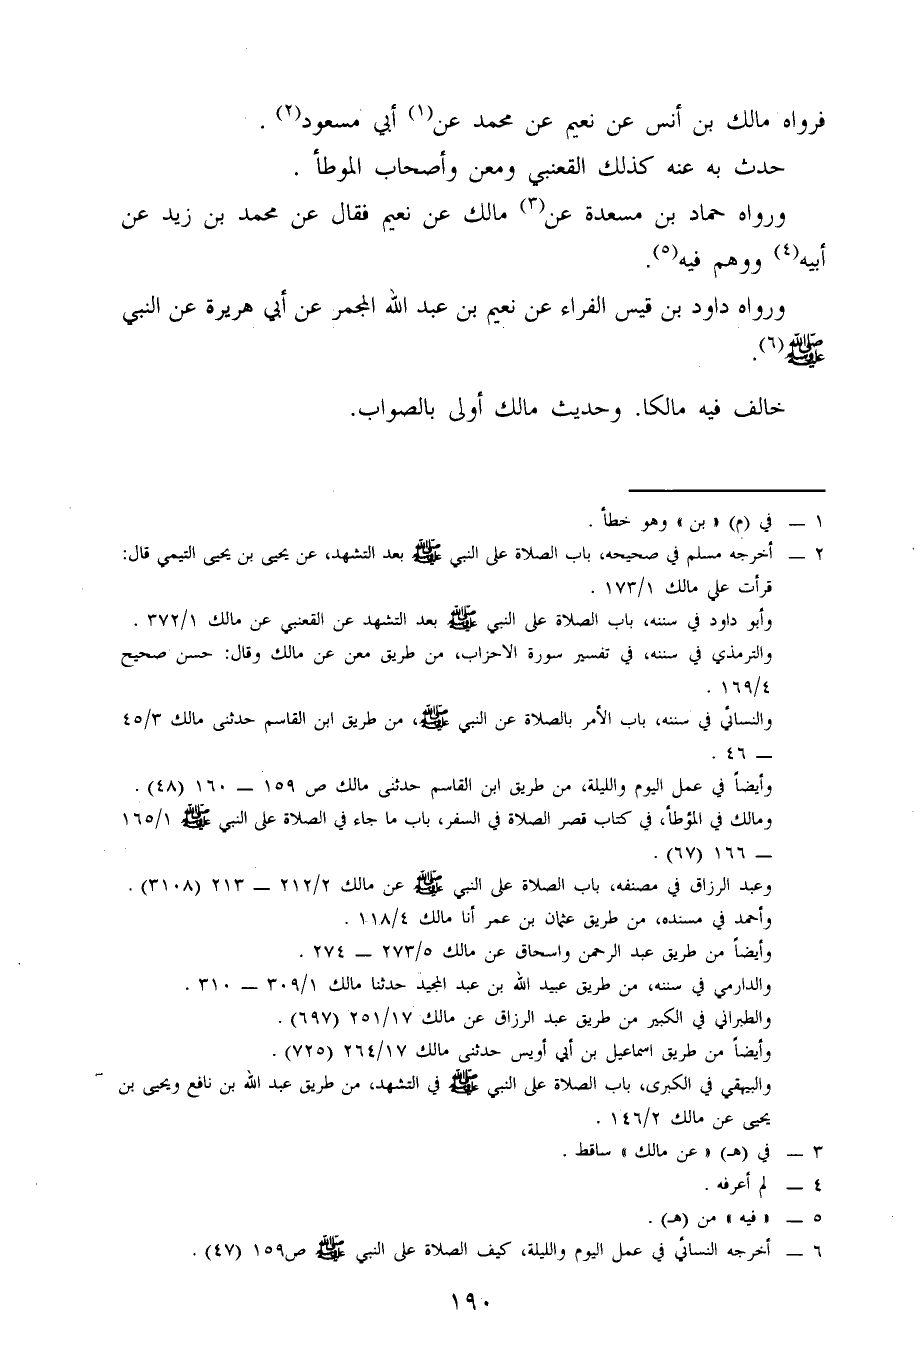 فرواه مالك بن أنس عن نعيم عن محمد عن(١) أبي مسعود(٢) .
حدث به عنه كذلك القعنبي ومعن وأصحاب الموطأ .
ورواه حماد بن مسعدة عن(٣) مالك عن نعيم فقال عن محمد بن زيد عن
أبيه(٤) ووهم فيه(٥).
ورواه داود بن قيس الفراء عن نعيم بن عبد الله المجمر عن أبي هريرة عن النبي
ﷺ(٦).
خالف فيه مالكا. وحديث مالك أولى بالصواب.
١ ــ في (م) « بن » وهو خطأ .
٢ ــ أخرجه مسلم في صحيحه، باب الصلاة على النبي ﷺ بعد التشهد، عن يحيى بن يحيى التيمي قال:
قرأت علي مالك ١٧٣/١ .
وأبو داود في سننه، باب الصلاة على النبي ﷺ بعد التشهد عن القعنبي عن مالك ٣٧٢/١ .
والترمذي في سننه، في تفسير سورة الاحزاب، من طريق معن عن مالك وقال: حسن صحيح
١٦٩/٤ .
والنسائي في سننه، باب الأمر بالصلاة عن النبي ﷺ، من طريق ابن القاسم حدثنى مالك ٤٥/٣
ــ ٤٦ .
وأيضاً في عمل اليوم والليلة، من طريق ابن القاسم حدثنى مالك ص ١٥٩ ــ ١٦٠ (٤٨) .
ومالك في المؤطأ، في كتاب قصر الصلاة في السفر، باب ما جاء في الصلاة على النبي ﷺ ١٦٥/١
ــ ١٦٦ (٦٧) .
وعبد الرزاق في مصنفه، باب الصلاة على النبي ﷺ عن مالك ٢١٢/٢ ــ ٢١٣ (٣١٠٨) .
وأحمد في مسنده، من طريق عثمان بن عمر أنا مالك ١١٨/٤ .
وأيضاً من طريق عبد الرحمن واسحاق عن مالك ٢٧٣/٥ ــ ٢٧٤ .
والدارمي في سننه، من طريق عبيد الله بن عبد المجيد حدثنا مالك ٣٠٩/١ ــ ٣١٠ .
والطبراني في الكبير من طريق عبد الرزاق عن مالك ٢٥١/١٧ (٦٩٧) .
وأيضاً من طريق اسماعيل بن أبي أويس حدثنى مالك ٢٦٤/١٧ (٧٢٥) .
والبيهقي في الكبرى، باب الصلاة على النبي ﷺ في التشهد، من طريق عبد الله بن نافع ويحيى بن
يحيى عن مالك ١٤٦/٢ .
٣ ــ في (هـ) « عن مالك » ساقط .
٤ ــ لم أعرفه .
٥ ــ « فيه » من (هـ) .
٦ ــ أخرجه النسائي في عمل اليوم والليلة، كيف الصلاة على النبي ﷺ ص١٥٩ (٤٧) .
١٩٠